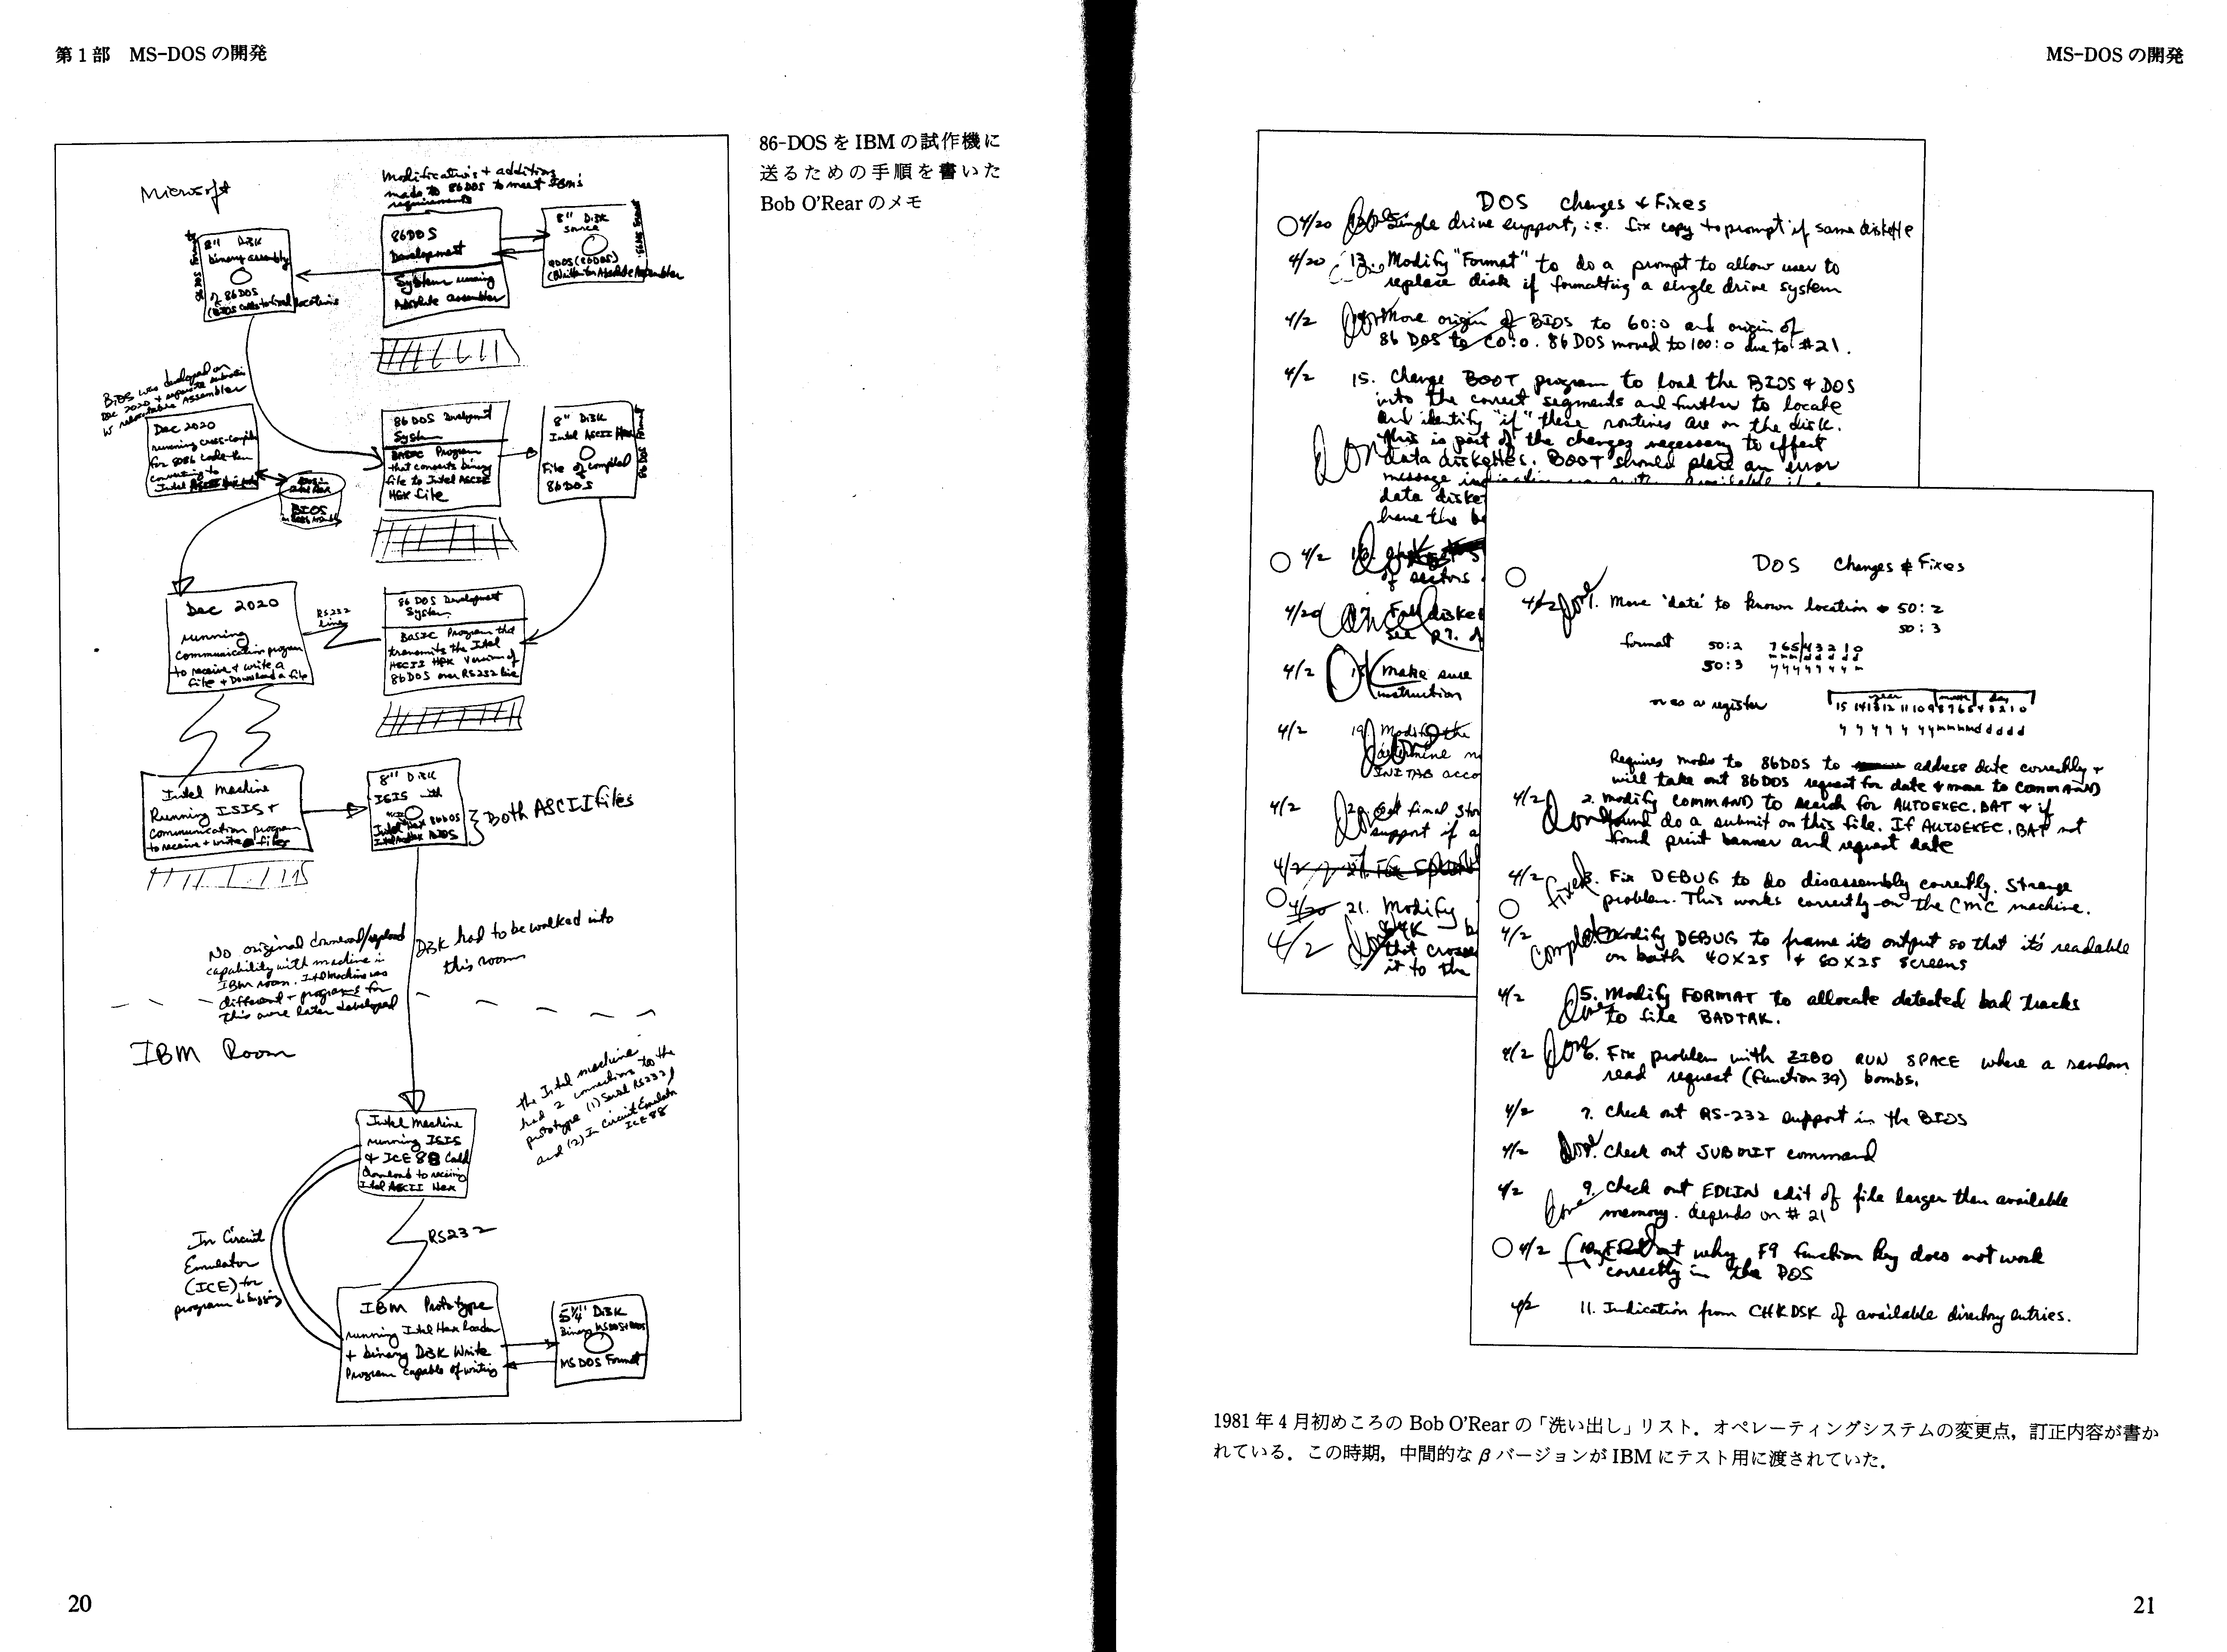 第1部 MS-DOSの開発
86-DOSをIBMの試作機に
送るための手順を書いた
Bob O'Rearのメモ
Microsoft
Modifications + additions
made to 86DOS to meet IBM's
requirements
8" Disk
binary assembly
of 86DOS
86DOS
Development
System running
Absolute assembler
8" Disk
source
BIOS was developed on
Dec 2020
Dec 2020
running cross-compiler
for 8086 code then
converting to
BIOS
86 DOS Development
System
BASIC Program
that converts binary
file to Intel ASCII
Hex file
8" Disk
Intel ASCII Hex
File of compiled
86DOS
86 DOS Format
Dec 2020
running
communication program
to receive + write a
file + Download a file
RS232
line
86 DOS Development
System
BASIC Program that
transmits the Intel
ASCII Hex Version of
86DOS over RS232 line
Intel Machine
Running ISIS +
Communication program
to receive + write files
8" Disk
ISIS with
Both ASCII files
No original download/upload
capability with machine in
IBM room. Intel machine was
different + programs for
this were later developed
Disk had to be walked into
this room
IBM Room
the Intel machine
had 2 connections to the
prototype (1) Serial RS232
and (2) In Circuit Emulator
ICE 88
Intel Machine
running ISIS
+ ICE 88
download to receiving
Intel ASCII Hex
In Circuit
Emulator
(ICE) for
program debugging
RS232
IBM Prototype
running Intel Hex loader
+ binary Disk Write
Program capable of writing
5 1/4" Disk
MSDOS Format
20
MS-DOSの開発
DOS Changes & Fixes
4/20 Single drive support, i.e. fix copy to prompt if same diskette
4/20 13. Modify "Format" to do a prompt to allow user to
replace disk if formatting a single drive system
4/2 Move origin of BIOS to 60:0 and origin of
86 DOS to C0:0. 86 DOS moved to 100:0 due to #21.
4/2 15. Change BOOT program to load the BIOS & DOS
into the correct segments and further to locate
and identify "if" these routines are on the disk.
This is part of the changes necessary to effect
data diskettes. BOOT should place an error
message
data diske
have the
4/2
of sectors
4/20
4/2 make sure
instruction
4/2 19. Modify the
determine
INITAB acco
4/2 Get final
support if a
4/2
4/20 21. Modify
4/2 Done
that crosse
it to the
DOS Changes & Fixes
4/2 Done 1. Move 'date' to known location 50:2
50:3
format 50:2 7 6 5 4 3 2 1 0
m m m d d d d d
50:3 y y y y y y y m
or as a register
year month day
15 14 13 12 11 10 9 8 7 6 5 4 3 2 1 0
y y y y y y y m m m m d d d d d
Requires mods to 86DOS to address date correctly +
will take out 86DOS request for date & move to COMMAND
4/2 Done 2. Modify COMMAND to search for AUTOEXEC.BAT & if
found do a submit on this file. If AUTOEXEC.BAT not
found print banner and request date
4/2 fixed 3. Fix DEBUG to do disassembly correctly. Strange
problem. This works correctly on the CMC machine.
4/2 Completed Modify DEBUG to frame its output so that it's readable
on both 40X25 & 80X25 screens
4/2 Done 5. Modify FORMAT to allocate detected bad tracks
to file BADTRK.
4/2 Done 6. Fix problem with ZIBO RUN SPACE where a random
read request (function 39) bombs.
4/2 7. Check out RS-232 support in the BIOS
4/2 Done Check out SUBMIT command
4/2 Done 9. Check out EDLIN edit of file larger than available
memory. depends on #21
4/2 10. Find out why F9 function key does not work
correctly in the DOS
4/2 11. Indication from CHKDSK of available directory entries.
1981年4月初めころのBob O'Rearの「洗い出し」リスト．オペレーティングシステムの変更点，訂正内容が書か
れている．この時期，中間的なβバージョンがIBMにテスト用に渡されていた．
21